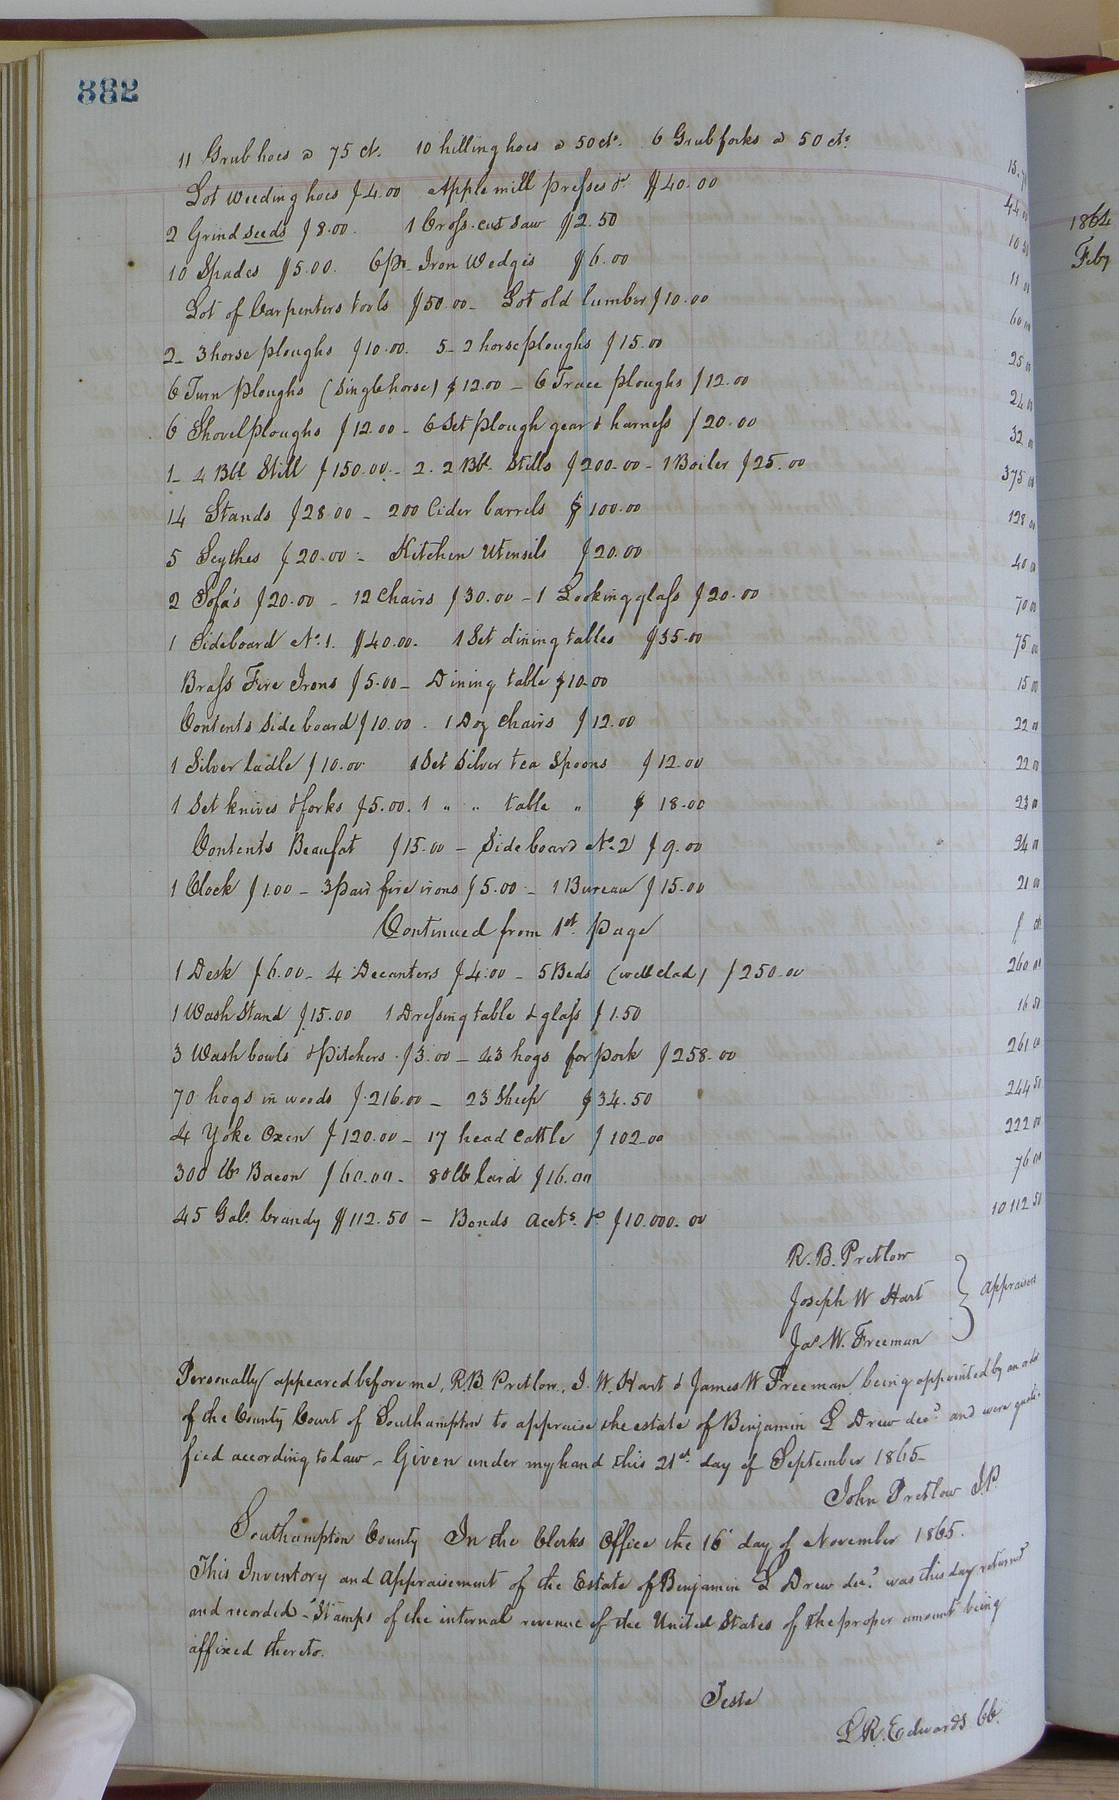 382
11 Grub hoes @ 75 ct. 10 hilling hoes @ 50 cts. 6 Grub forks @ 50 cts.
Lot weeding hoes $4.00 Apple mill presses &c $40.00 44.00
2 Grind seeds $8.00. 1 Cross-cut saw $2.50 10 50
10 Spades $5.00. 6 pr. Iron Wedges $6.00 11 00
Lot of Carpenters tools $50.00 - Lot old lumber $10.00 60 00
2 - 3 horse ploughs $10.00. 5 - 2 horse ploughs $15.00 25.00
6 Turn ploughs (Single horse) $12.00 - 6 Trace ploughs $12.00 24.00
6 Shovel ploughs $12.00 - 6 Set plough gear & harness $20.00 32.00
1 - 4 Bbl. Still $150.00 - 2. 2 Bbl. Stills $200.00 - 1 Boiler $25.00 375 00
14 Stands $28.00 - 200 Cider barrels $100.00 128 00
5 Scythes $20.00 - Kitchen Utensils $20.00 40 00
2 Sofa's $20.00 - 12 Chairs $30.00 - 1 Looking glass $20.00 70 00
1 Sideboard No. 1. $40.00. 1 Set dining tables $35.00 75 00
Brass Fire Irons $5.00 - Dining table $10.00 15 00
Contents Sideboard $10.00. 1 Doz Chairs $12.00 22 00
1 Silver ladle $10.00 1 Set Silver tea Spoons $12.00 22 00
1 Set knives & forks $5.00. 1 " " table " $18.00 23 00
Contents Beaufat $15.00 - Sideboard No. 2 $9.00 24 00
1 Clock $1.00 - 3 pair fire irons $5.00 - 1 Bureau $15.00 21 00
Continued from 1st. page $ cts
1 Desk $6.00 - 4 Decanters $4.00 - 5 Beds (well clad) $250.00 260.00
1 Wash Stand $15.00 1 Dressing table & glass $1.50 16 50
3 Wash bowls & Pitchers $3.00 - 43 hogs for pork $258.00 261 00
70 hogs in woods $216.00 - 23 Sheep $34.50 244 50
4 Yoke Oxen $120.00 - 17 head Cattle $102.00 222 00
300 lbs Bacon $60.00 - 80 lb lard $16.00 76 00
45 Gals. brandy $112.50 - Bonds Accts. &c $10.000.00 10 112 50
R. B. Pretlow
Joseph W Hart } Appraisers
Jas. W. Freeman
Personally appeared before me, R. B. Pretlow, J. W. Hart & James W Freeman being appointed by an order
of the County Court of Southampton to appraise the estate of Benjamin L Drew decd. and were quali-
fied according to law - Given under my hand this 21st day of September 1865 -
John Pretlow J.P.
Southampton County In the Clerks Office the 16 day of November 1865.
This Inventory and Appraisement of the Estate of Benjamin L Drew decd. was this day returned
and recorded - Stamps of the internal revenue of the United States of the proper amount being
affixed thereto.
Teste
L. R. Edwards CC.
1864
Feby